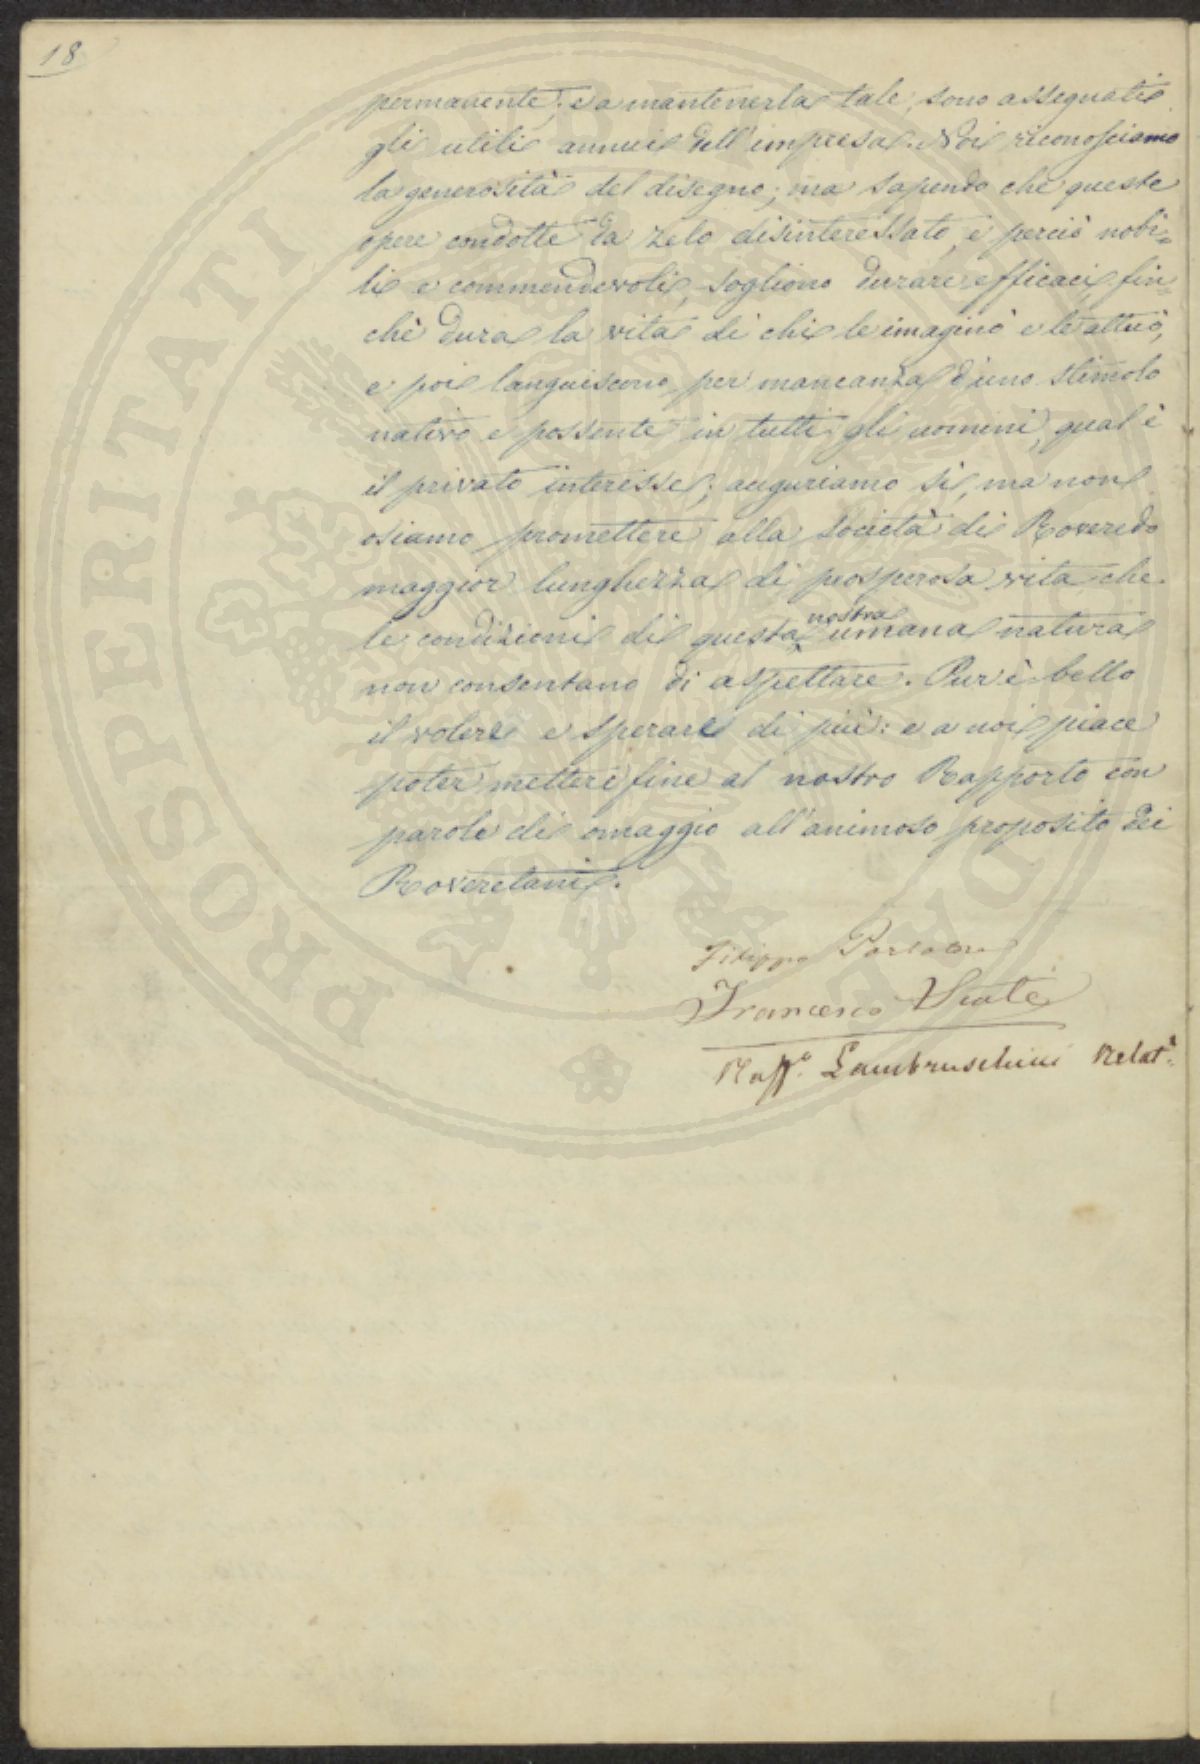 18
permanente; e a mantenerla tale, sono assegnati
gli utili annui dell'impresa. Noi riconosciamo
la generosità del disegno; ma sapendo che queste
opere condotte da zelo disinteressato, e perciò nobi-
li e commendevoli, sogliono durare efficaci, fin-
chè dura la vita di chi le imaginò e le attuò,
e poi languiscono per mancanza d'uno stimolo
nativo e possente in tutti gli uomini, qual è
il privato interesse; auguriamo sì, ma non
osiamo promettere alla Società di Roveredo
maggior lunghezza di prosperosa vita che
le condizioni di questa nostra umana natura
non consentano di aspettare. Pur è bello
il volere e sperare di più: e a noi piace
poter mettere fine al nostro Rapporto con
parole di omaggio all'animoso proposito dei
Roveretani.
Filippo Parlatore
Francesco
Raff.o Lambruschini Relat.e
PROSPERITATI PUBLICAE AUGENDAE